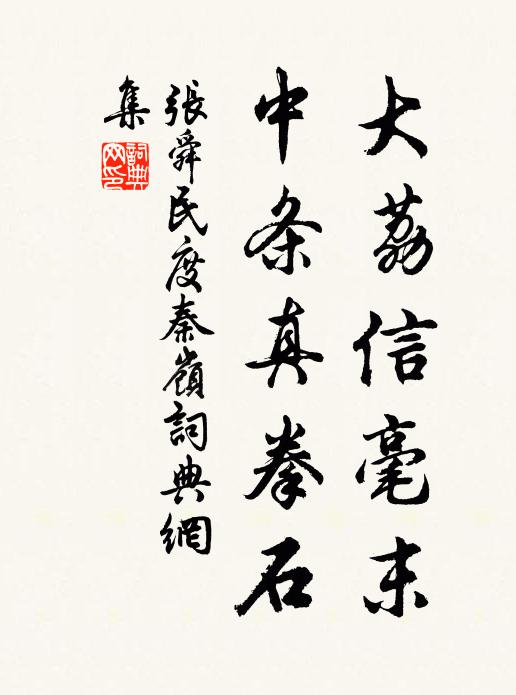 大荔信毫末
中条真拳石
張舜民度秦嶺詞典網
集
詞典
网印